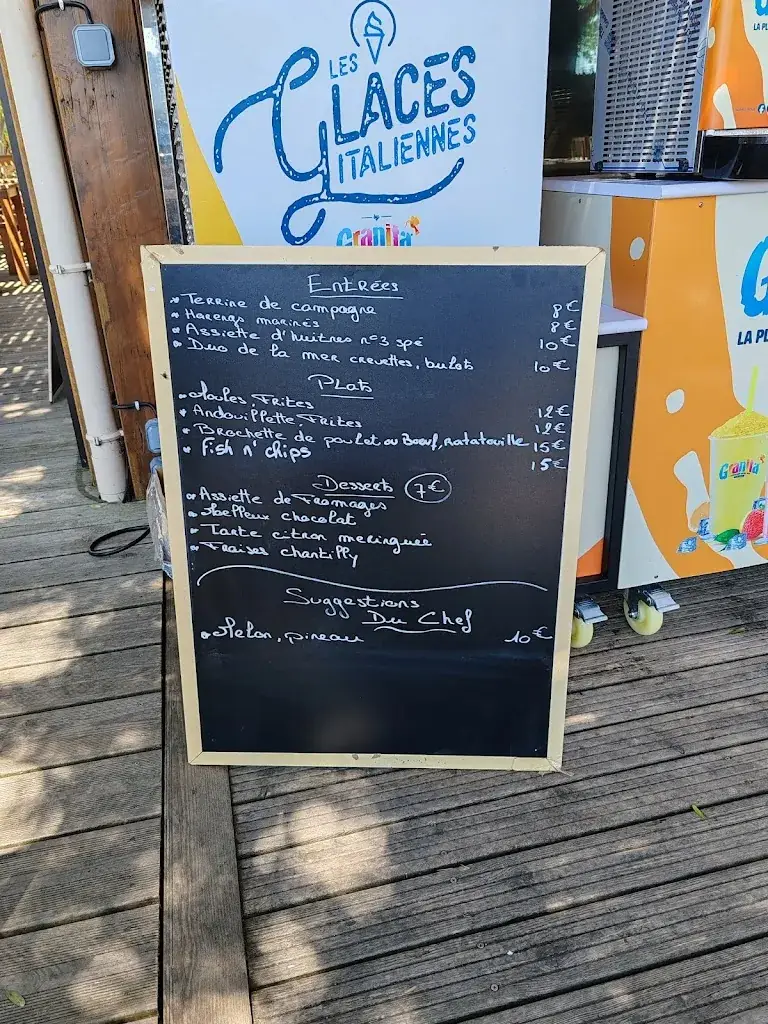 LES
GLACES
ITALIENNES
Granita
Entrées
Terrine de campagne 8€
Harengs marinés 8€
Assiette d'huitres n°3 spé 10€
Duo de la mer crevettes, bulots 10€
Plats
Moules, Frites 12€
Andouillette, Frites 12€
Brochette de poulet ou Boeuf, ratatouille 15€
Fish n' chips 15€
Desserts 7€
Assiette de Fromages
Moelleux chocolat
Tarte citron meringuée
Fraises chantilly
Suggestions
Du Chef
Melon, pineau 10€
G
LA PL
G
LA PL
Granita